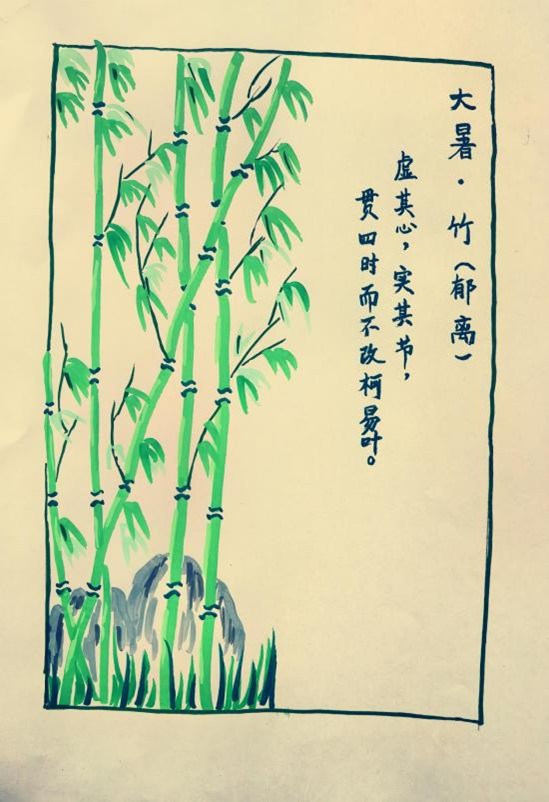 大暑·竹(郁离)
虚其心,实其节,
贯四时而不改柯易叶。